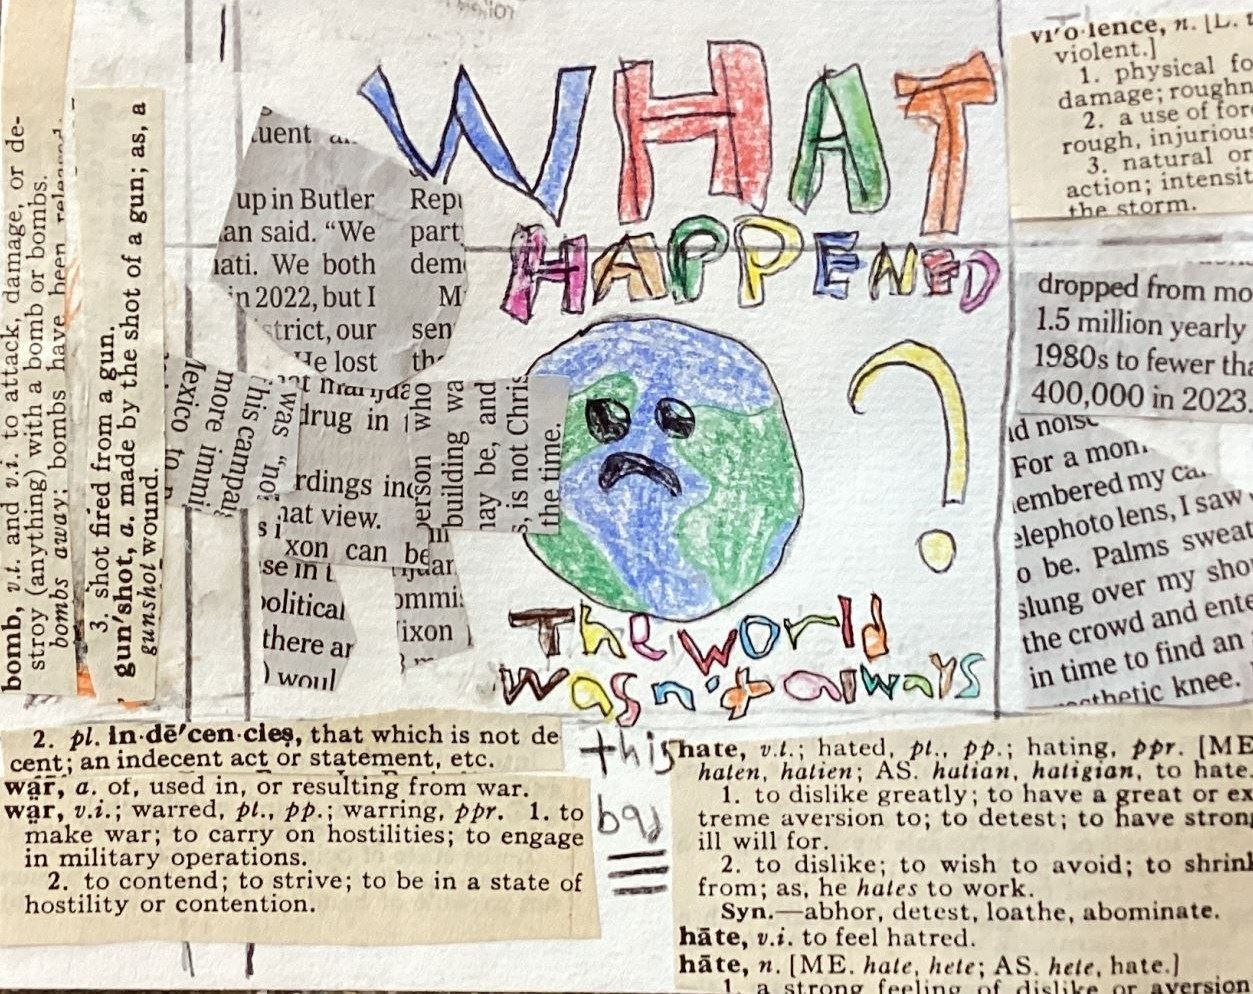 WHAT
HAPPENED
?
The world
wasn't always
this
bad
bomb, v.t. and v.i. to attack, damage, or de-
stroy (anything) with a bomb or bombs.
bombs away; bombs have been released.
3. shot fired from a gun.
gun'shot, a. made by the shot of a gun; as, a
gunshot wound.
up in Butler
an said. "We
ati. We both
in 2022, but I
strict, our
He lost
Rep
part
dem
M
sen
the
lexico to
more immi
This campaig
was "no
not marijua
drug in
rdings inc
hat view.
xon can be
se in t
political
there ar
) woul
ommis
ixon
erson who
building wa
nay be, and
s, is not Chris
the time.
vi'o·lence, n. [L.
violent.]
1. physical fo
damage; roughn
2. a use of for
rough, injuriou
3. natural or
action; intensit
the storm.
dropped from mo
1.5 million yearly
1980s to fewer tha
400,000 in 2023.
d noise
For a mom
embered my ca
elephoto lens, I saw
o be. Palms sweat
slung over my shou
the crowd and ente
in time to find an
sthetic knee.
2. pl. in·dē'cen·cies, that which is not de
cent; an indecent act or statement, etc.
wạr, a. of, used in, or resulting from war.
wạr, v.i.; warred, pl., pp.; warring, ppr. 1. to
make war; to carry on hostilities; to engage
in military operations.
2. to contend; to strive; to be in a state of
hostility or contention.
hate, v.t.; hated, pt., pp.; hating, ppr. [ME
haten, hatien; AS. hatian, hatigian, to hate.
1. to dislike greatly; to have a great or ex
treme aversion to; to detest; to have strong
ill will for.
2. to dislike; to wish to avoid; to shrink
from; as, he hates to work.
Syn.—abhor, detest, loathe, abominate.
hāte, v.i. to feel hatred.
hāte, n. [ME. hate, hete; AS. hete, hate.]
1. a strong feeling of dislike or aversion